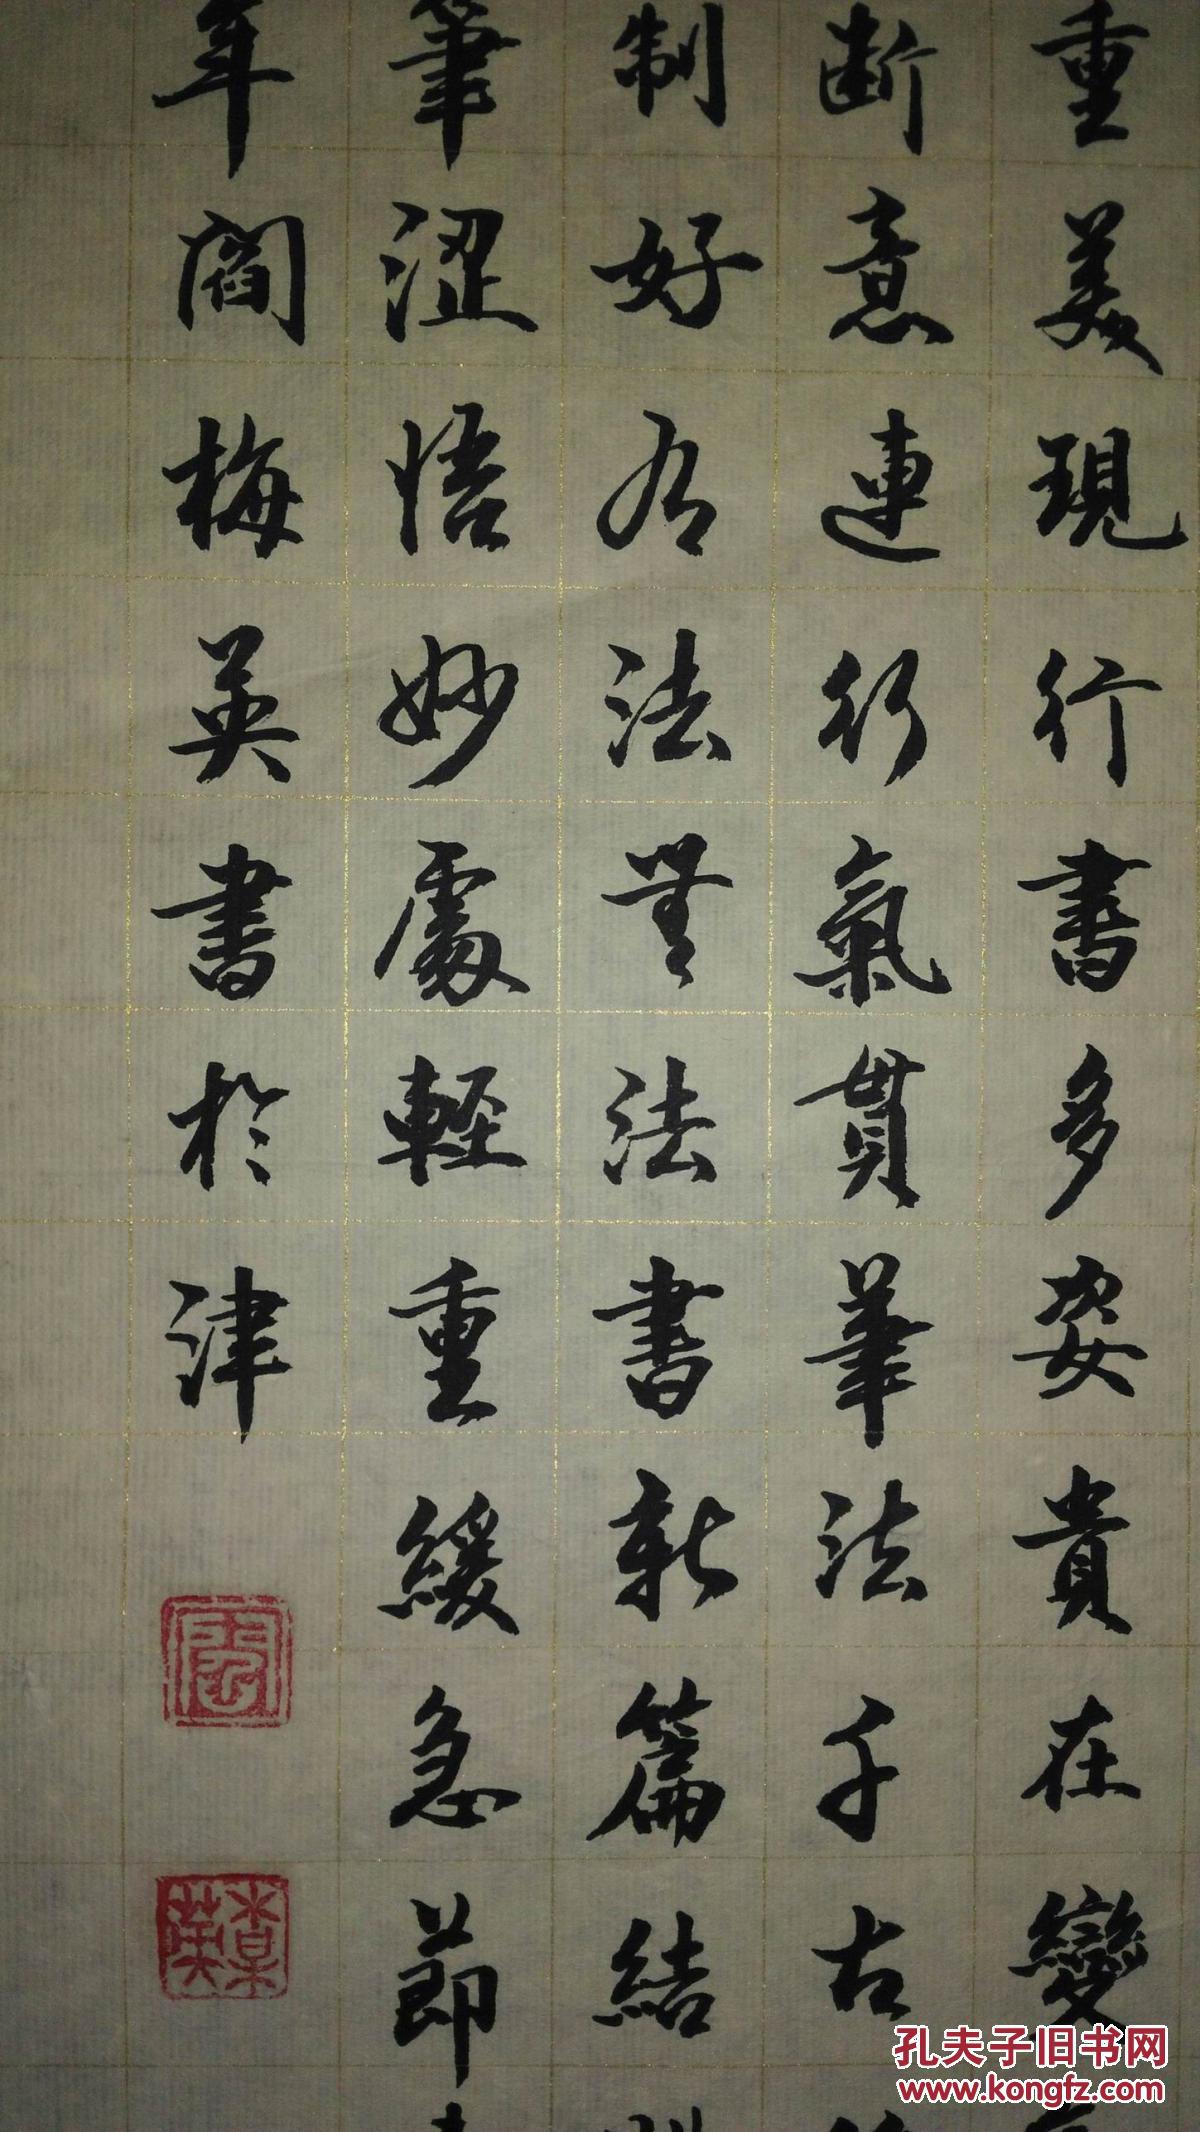 重美現行書多姿貴在變
断意連行氣貫筆法千古
制好有法無法書新篇結
筆澀悟妙處輕重緩急節
年閻梅英書於津
閻
梅英
孔夫子旧书网
www.kongfz.com